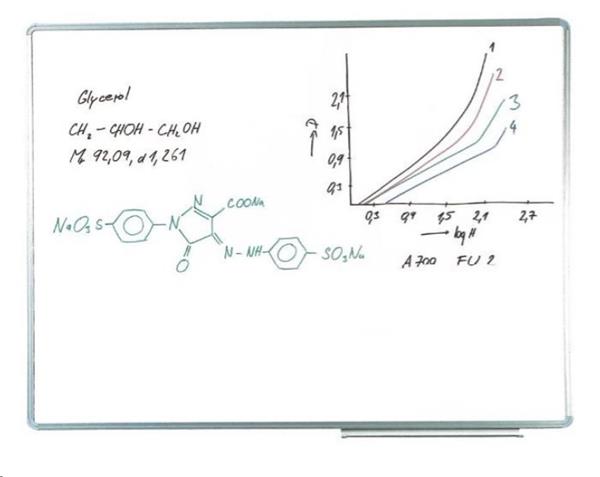 Glycerol
CH₂ - CHOH - CH₂OH
M 92,09, d 1,261
NaO₃S
N
N
COONa
O
N - NH
SO₃Na
1
2
3
4
2,1
1,5
0,9
0,3
0,3
0,9
1,5
2,1
2,7
log H
A 700 FU 2